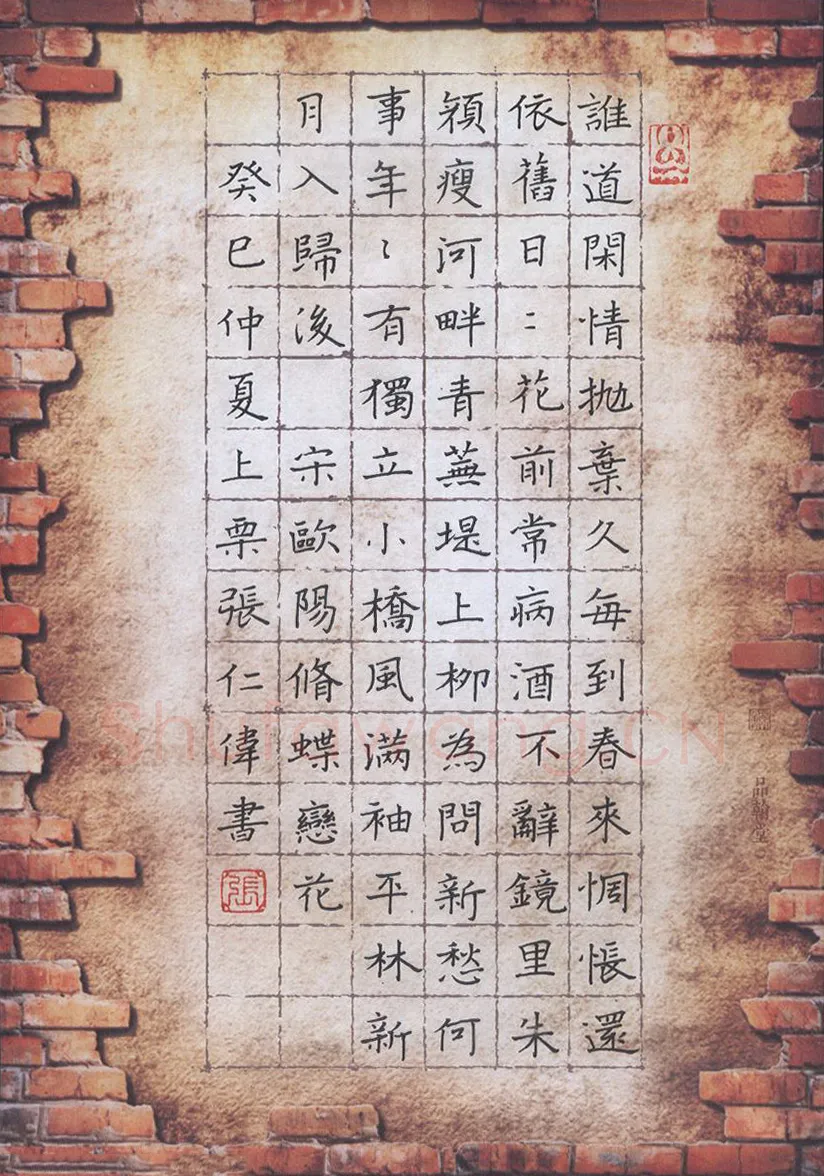 誰道閑情抛棄久每到春來惆悵還
依舊日〻花前常病酒不辭鏡里朱
顔瘦河畔青蕪堤上柳為問新愁何
事年〻有獨立小橋風滿袖平林新
月入歸後 宋歐陽脩蝶戀花
癸巳仲夏上栗張仁偉書
張
Shufawang.CN